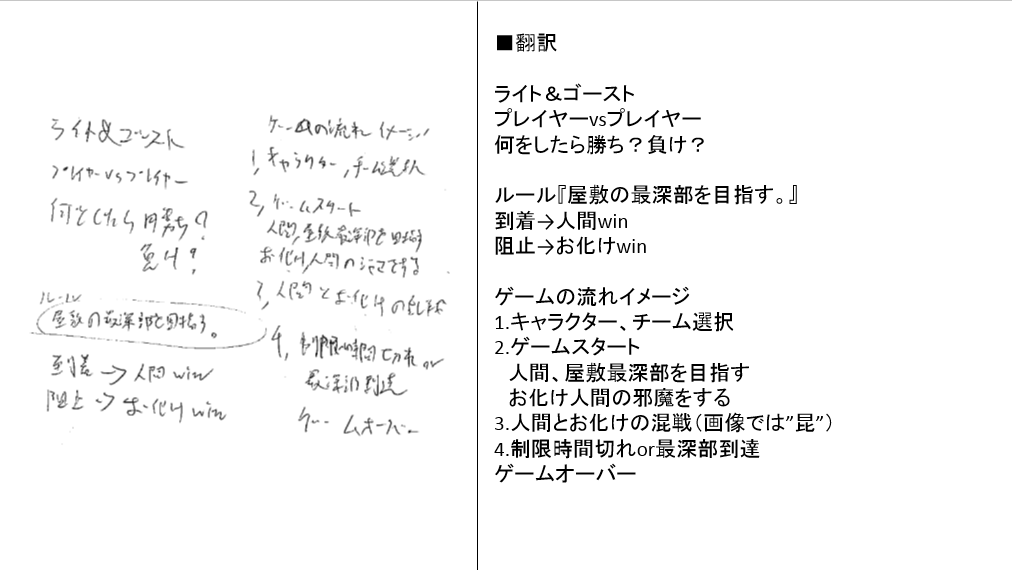 ライト&ゴースト
プレイヤーvsプレイヤー
何をしたら勝ち?
負け?
ルール
屋敷の最深部を目指す。
到着→人間win
阻止→お化けwin
ゲームの流れイメージ
1,キャラクター,チーム選択
2,ゲームスタート
人間,屋敷最深部を目指す
お化け,人間のジャマをする
3,人間とお化けの乱戦
4,制限時間切れor
最深部到達
ゲームオーバー
■翻訳
ライト&ゴースト
プレイヤーvsプレイヤー
何をしたら勝ち?負け?
ルール『屋敷の最深部を目指す。』
到着→人間win
阻止→お化けwin
ゲームの流れイメージ
1.キャラクター、チーム選択
2.ゲームスタート
人間、屋敷最深部を目指す
お化け人間の邪魔をする
3.人間とお化けの混戦(画像では”昆”)
4.制限時間切れor最深部到達
ゲームオーバー